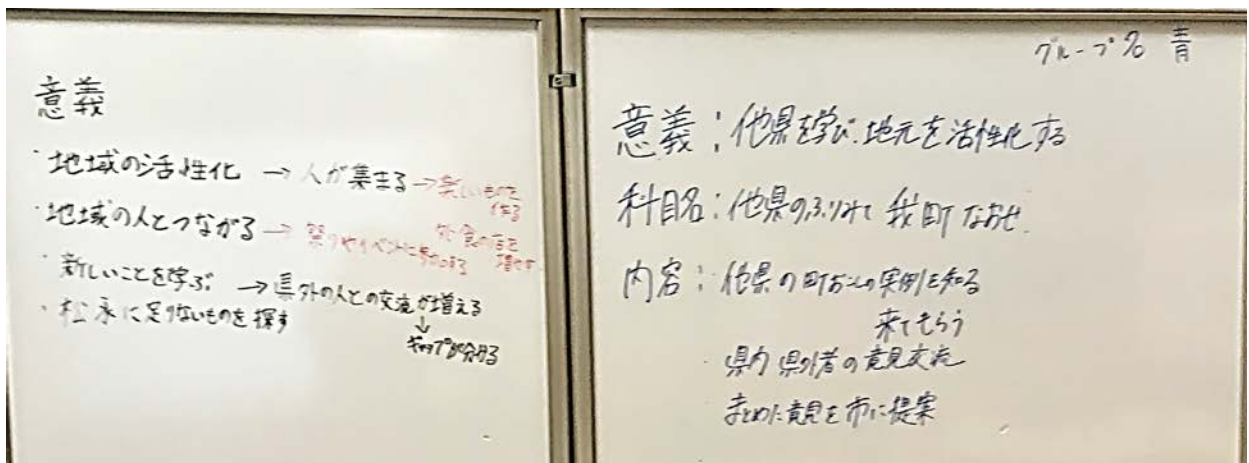 意義
・地域の活性化 → 人が集まる → 楽しいものを
作る
・地域の人とつながる → 祭りやイベントに参加する
外食の店を
増やす
・新しいことを学ぶ → 県外の人との交流が増える
↓
ギャップが分かる
・松永に足りないものを探す
グループ名 青
意義：他県を学び、地元を活性化する
科目名：他県のふりみて我町なおせ
内容：他県の町おこしの実例を知る
来てもらう
・県内県外者の意見交流
まとめた意見を市に提案